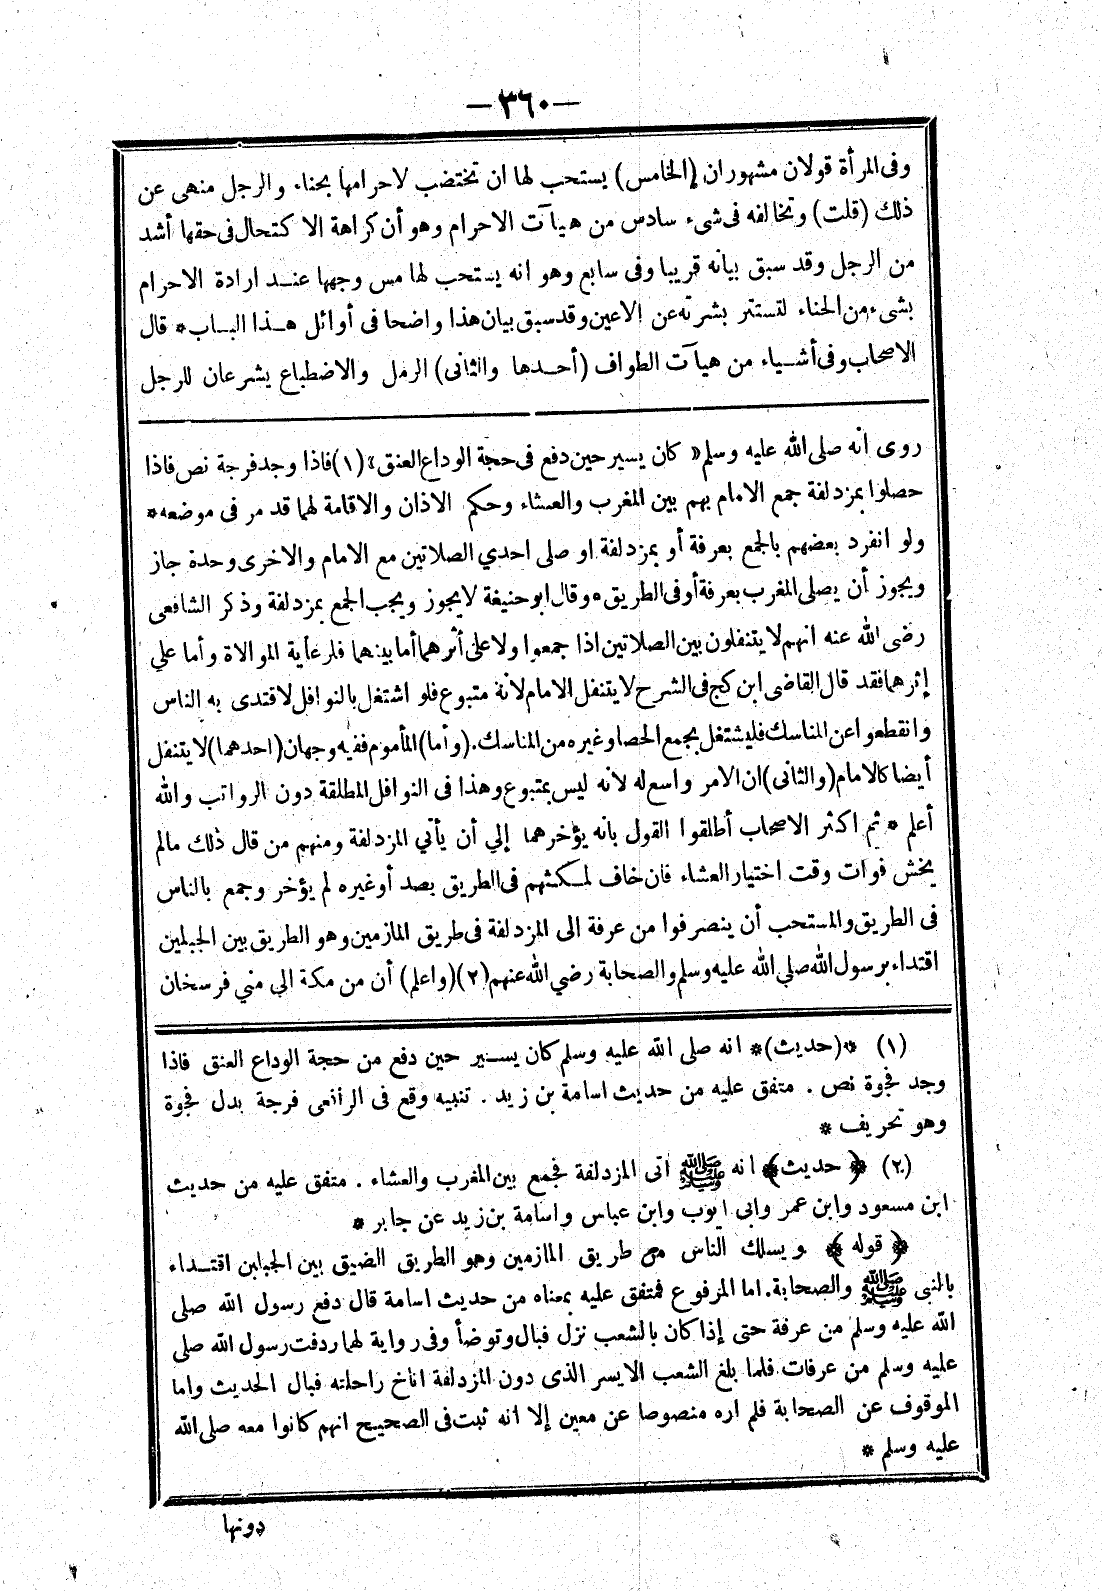 —٣٦٠—
وفى المرأة قولان مشهوران (الخامس) يستحب لها ان تختضب لاحرامها بحناء والرجل منهى عن
ذلك (قلت) وتخالفه فى شىء سادس من هيآت الاحرام وهو أن كراهة الاكتحال فى حقها أشد
من الرجل وقد سبق بيانه قريبا وفى سابع وهو انه يستحب لها مس وجهها عنـد ارادة الاحرام
بشىء من الحناء لتستتر بشرته عن الاعين وقد سبق بيان هذا واضحا فى أوائل هـذا البـاب* قال
الاصحاب وفى أشـياء من هيآت الطواف (أحـدها والثانى) الرمل والاضطباع يشرعان للرجل
روى انه صلى الله عليه وسلم « كان يسير حين دفع فى حجة الوداع العنق» (١) فاذا وجد فرجة نص فاذا
حصلوا بمزدلفة جمع الامام بهم بين المغرب والعشاء وحكم الاذان والاقامة لهما قد مر فى موضعه*
ولو انفرد بعضهم بالجمع بعرفة أو بمزدلفة او صلى احدي الصلاتين مع الامام والاخرى وحدة جاز
ويجوز أن يصلى المغرب بعرفة أو فى الطريق * وقال ابو حنيفة لا يجوز ويجب الجمع بمزدلفة وذكر الشافعى
رضى الله عنه انهم لا يتنفلون بين الصلاتين اذا جمعوا ولا على أثرهما أما بينهما فلرعاية الموالاة وأما علي
إثرهما فقد قال القاضى ابن كج فى الشرح لا يتنفل الامام لانة متبوع فلو اشتغل بالنوافل لاقتدى به الناس
وانقطعوا عن المناسك فليشتغل بجمع الحصا وغيره من المناسك. (وأما) المأموم ففيه وجهان (احدهما) لا يتنفل
أيضا كالامام (والثانى) ان الامر واسع له لانه ليس بمتبوع وهذا فى النوافل المطلقة دون الرواتب والله
أعلم * ثم اكثر الاصحاب أطلقوا القول بانه يؤخرهما إلي أن يأتي المزدلفة ومنهم من قال ذلك مالم
يخش فوات وقت اختيار العشاء فان خاف لمكثهم فى الطريق بصد أو غيره لم يؤخر وجمع بالناس
فى الطريق والمستحب أن ينصرفوا من عرفة الى المزدلفة فى طريق المازمين وهو الطريق بين الجبلين
اقتداء برسول الله صلي الله عليه وسلم والصحابة رضي الله عنهم (٢) (واعلم) أن من مكة الي مني فرسخان
(١) *(حديث)* انه صلى الله عليه وسلم كان يسـير حين دفع من حجة الوداع العنق فاذا
وجد فجوة نص . متفق عليه من حديث اسامة بن زيد . تنبيه وقع فى الرافعى فرجة بدل فجوة
وهو تحريف *
(٢) ﴿ حديث ﴾ انه ﷺ اتى المزدلفة فجمع بين المغرب والعشاء . متفق عليه من حديث
ابن مسعود وابن عمر وابى ايوب وابن عباس واسامة بن زيد عن جابر *
﴿ قوله ﴾ ويسلك الناس من طريق المازمين وهو الطريق الضيق بين الجبلين اقتـداء
بالنبى ﷺ والصحابة. اما المرفوع فمتفق عليه بمعناه من حديث اسامة قال دفع رسول الله صلى
الله عليه وسلم من عرفة حتى إذا كان بالشعب نزل فبال وتوضأ وفى رواية لهما ردفت رسول الله صلى
عليه وسلم من عرفات فلما بلغ الشعب الايسر الذى دون المزدلفة اناخ راحلته فبال الحديث واما
الموقوف عن الصحابة فلم اره منصوصا عن معين إلا انه ثبت فى الصحيح انهم كانوا معه صلى الله
عليه وسلم *
دونها